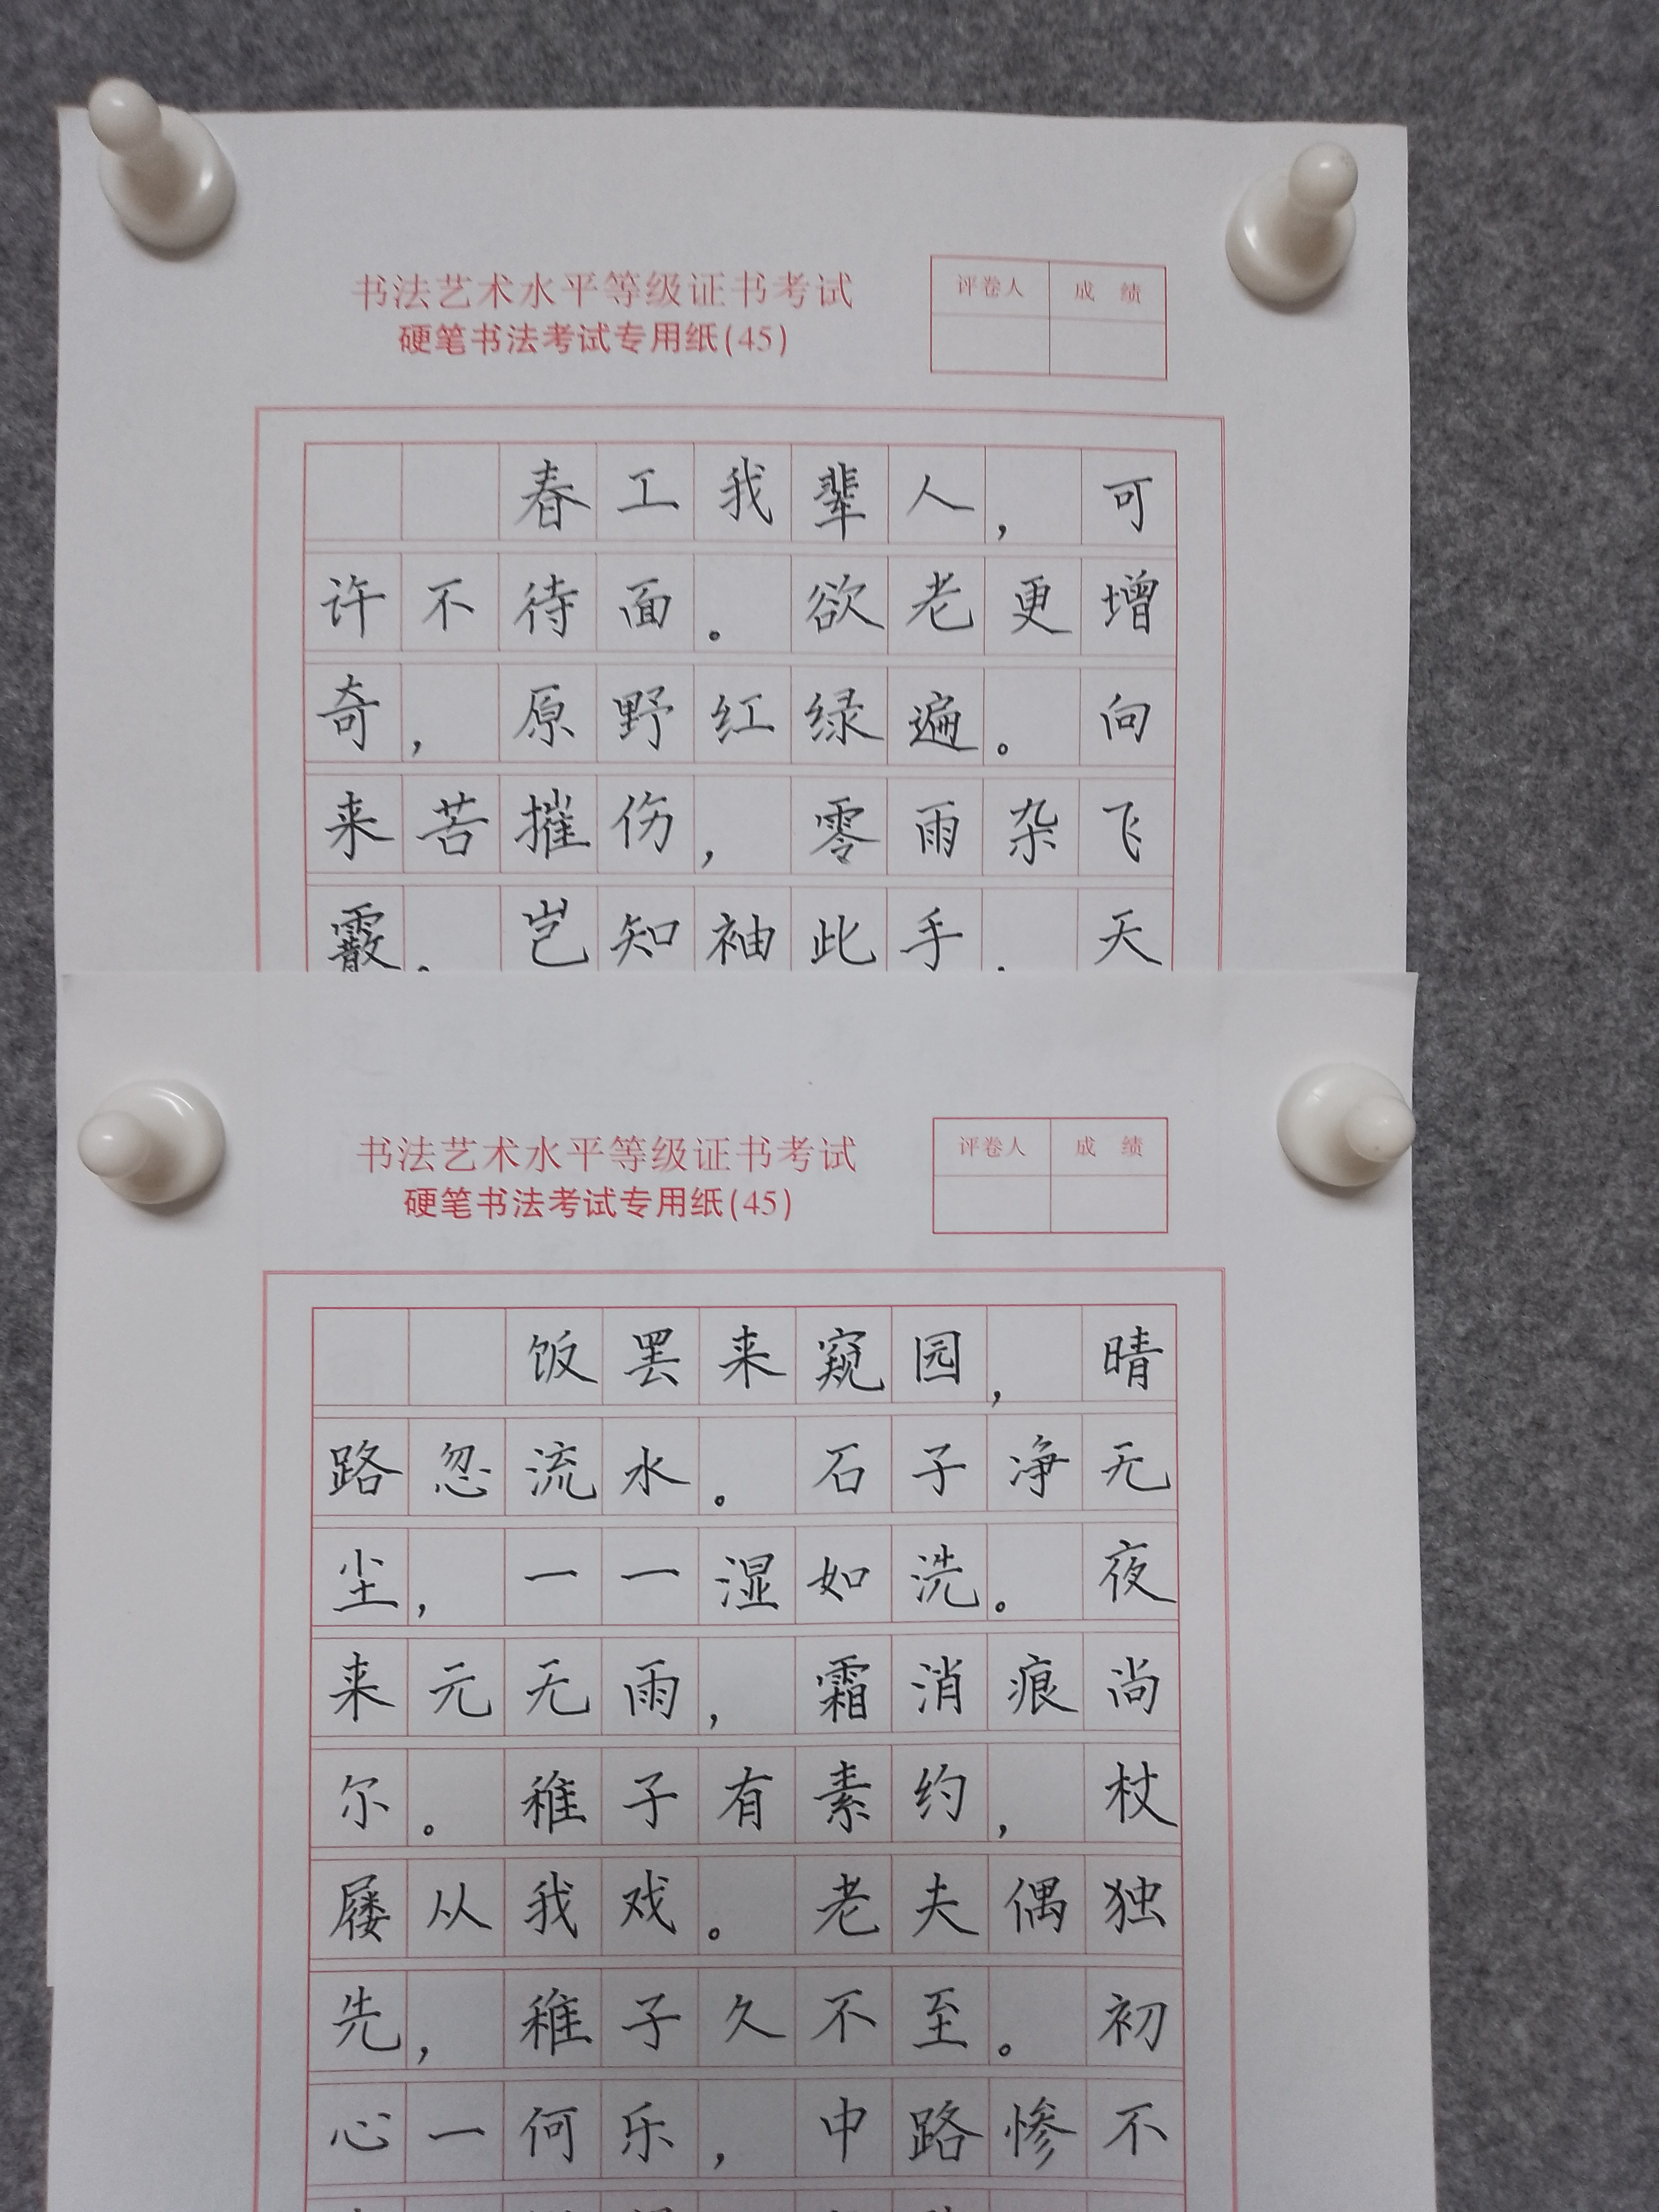 书法艺术水平等级证书考试
硬笔书法考试专用纸(45)
评卷人 成绩
春工我辈人，可
许不待面。欲老更增
奇，原野红绿遍。向
来苦摧伤，零雨杂飞
霰。岂知袖此手，天
书法艺术水平等级证书考试
硬笔书法考试专用纸(45)
评卷人 成绩
饭罢来窥园，晴
路忽流水。石子净无
尘，一一湿如洗。夜
来元无雨，霜消痕尚
尔。稚子有素约，杖
屦从我戏。老夫偶独
先，稚子久不至。初
心一何乐，中路惨不